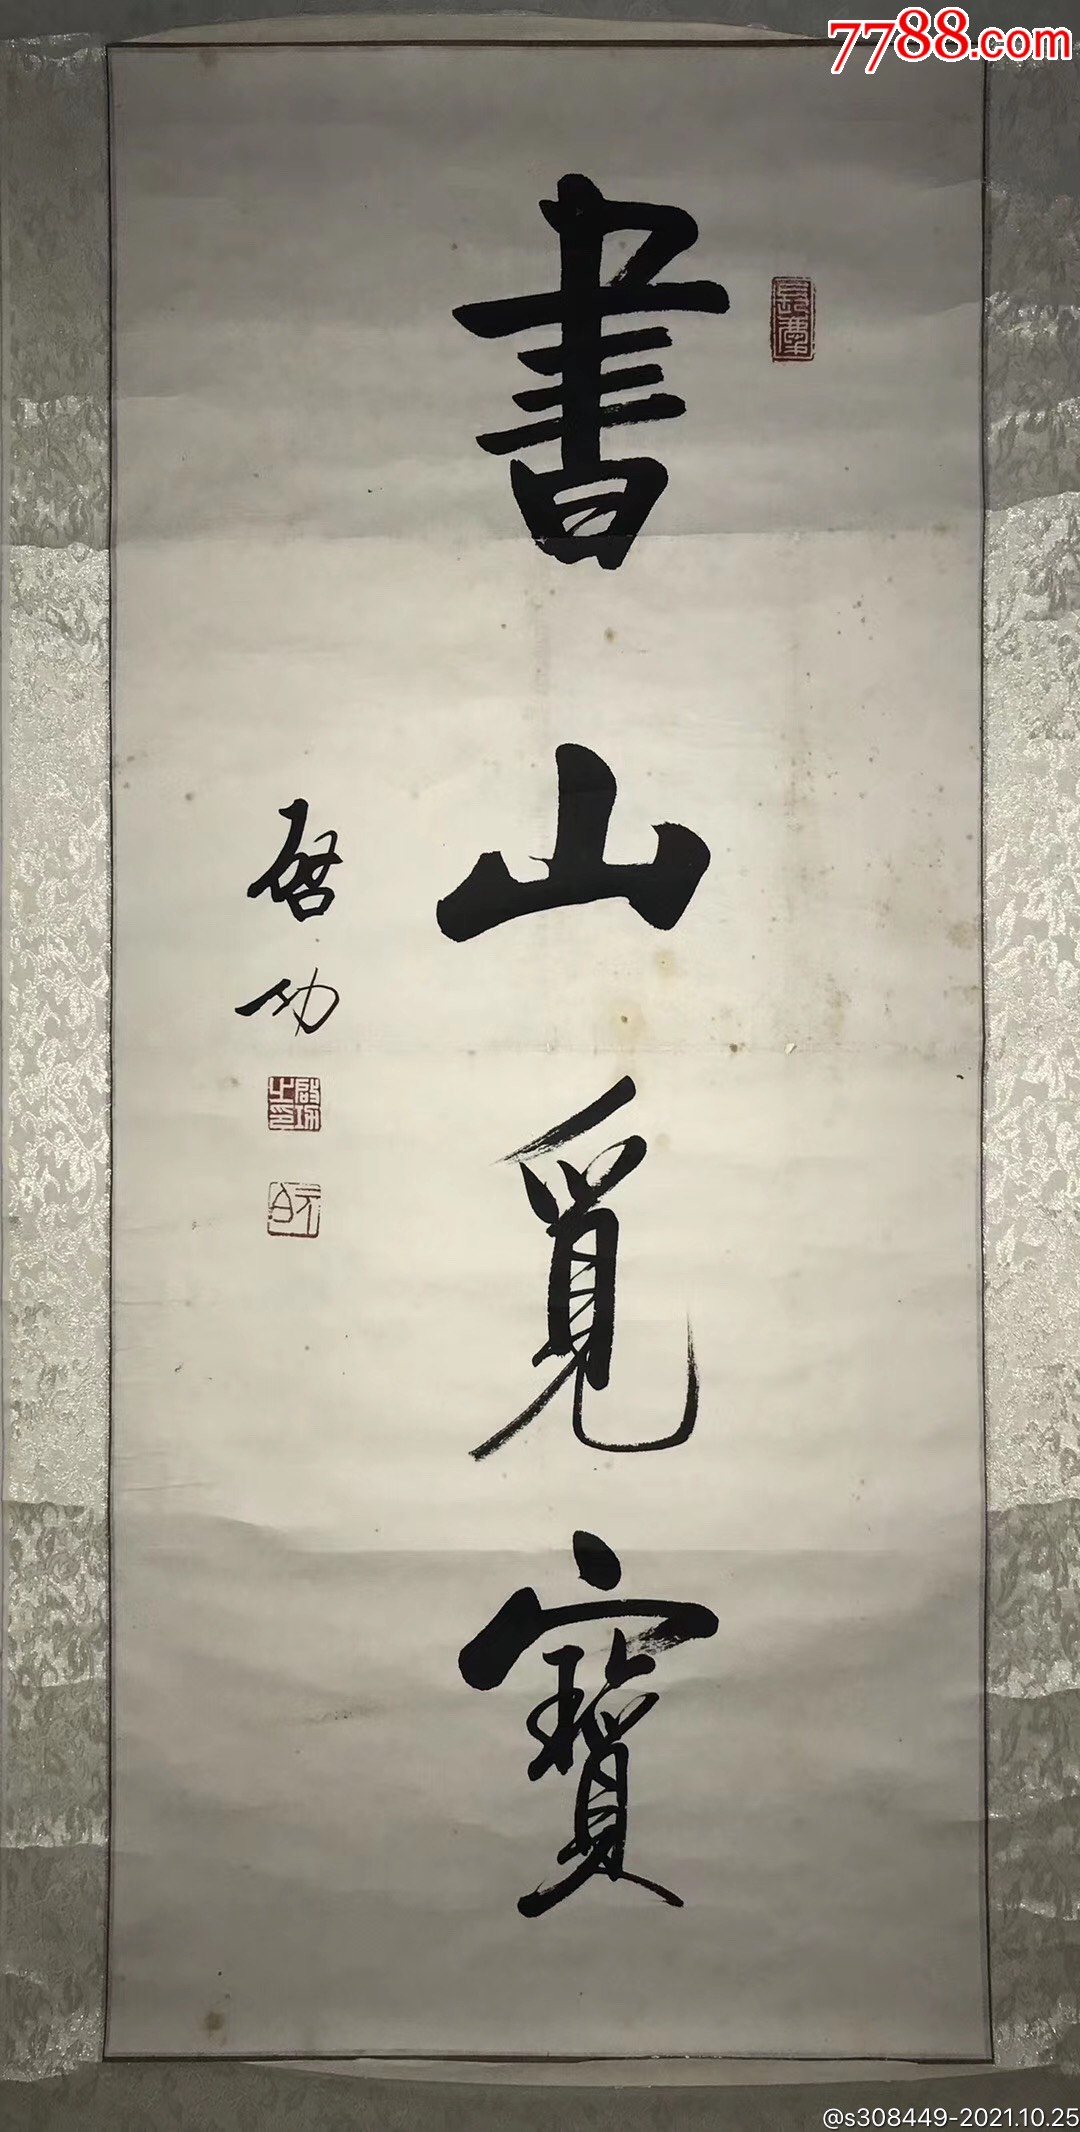 7788.com
書山覓寶
啓功
啟功之印
元白
@s308449-2021.10.25